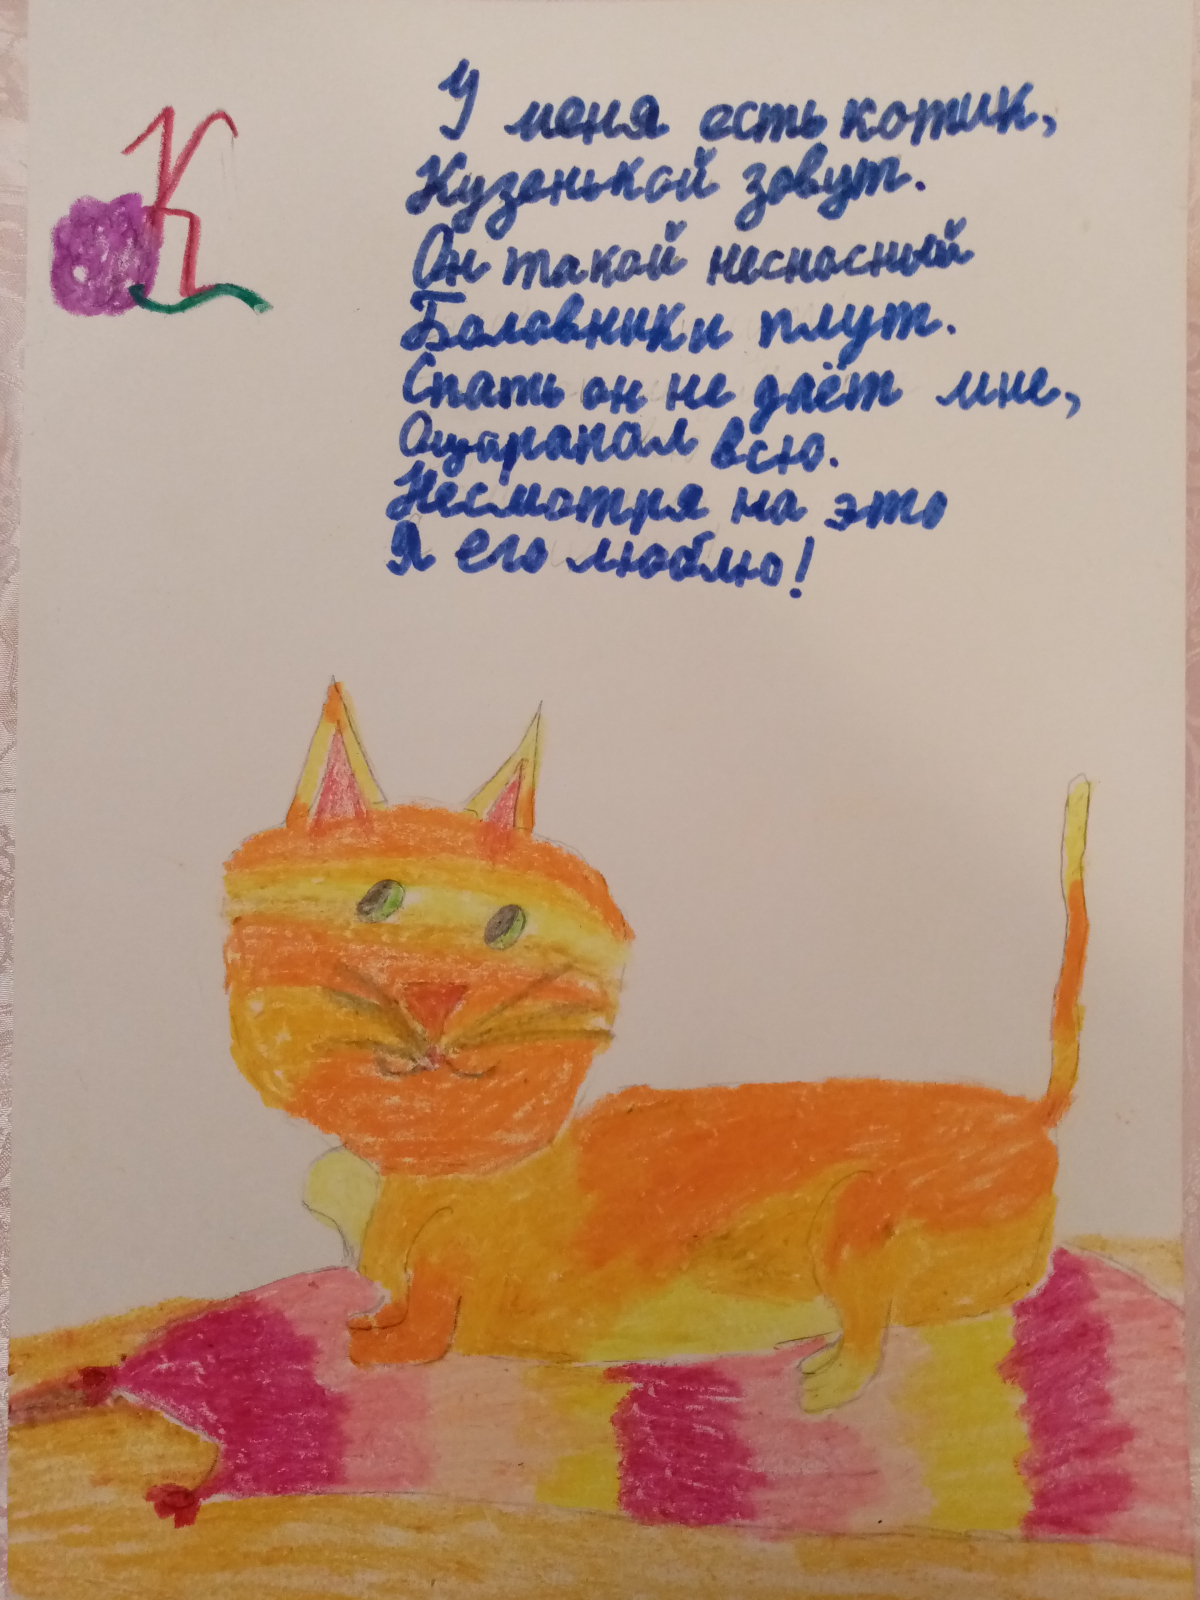 К
У меня есть котик,
Кузенькой зовут.
Он такой несносный
Баловник и плут.
Спать он не даёт мне,
Оцарапал всю.
Несмотря на это
Я его люблю!